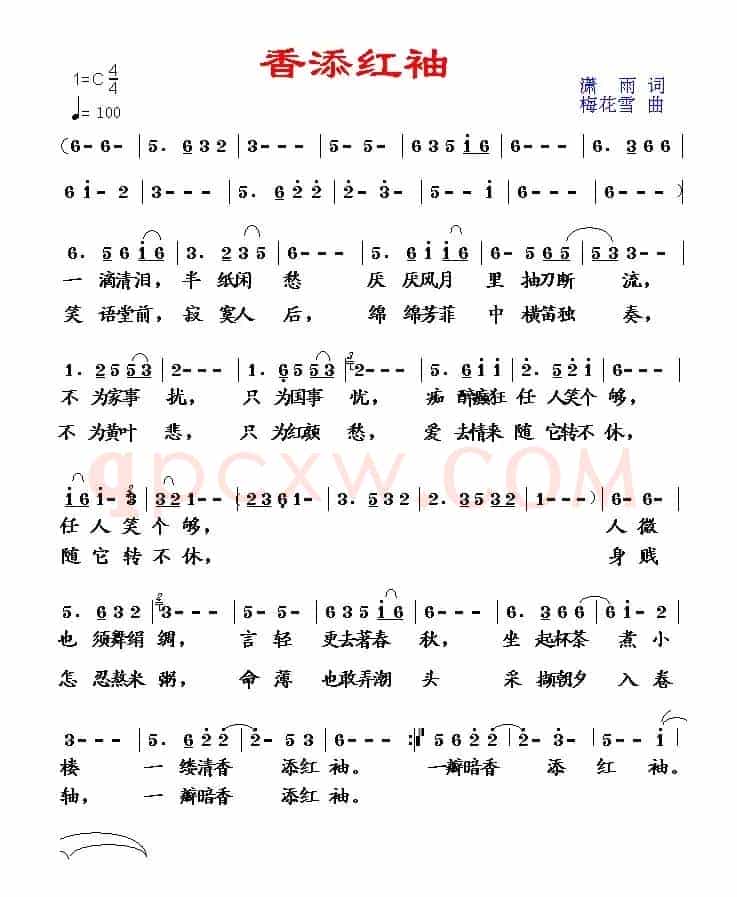 香添红袖
1=C 4/4
♩= 100
潇 雨 词
梅花雪 曲
(6- 6- | 5. 632 | 3--- | 5- 5- | 635i6 | 6--- | 6. 366 |
6i- 2 | 3--- | 5. 622 | 2- 3- | 5-- i | 6--- | 6--- )
6. 56i6 | 3. 235 | 6--- | 5. 6ii6 | 6-- 565 | 553-- |
一 滴清泪，半 纸闲 愁 厌 厌风月 里 抽刀断 流，
笑 语堂前，寂 寞人 后， 绵 绵芳菲 中 横笛独 奏，
1. 2553 | 2--- | 1. 6553 | 2-- | 5. 6ii | 2. 52i | 6--- |
不 为家事 扰， 只 为国事 忧， 痴 醉癫狂 任 人笑个 够，
不 为黄叶 悲， 只 为红颜 愁， 爱 去情来 随 它转不 休，
i6i- 3 | 321-- | 2361-- | 3. 532 | 2. 3532 | 1-- ) | 6- 6- |
任 人 笑 个 够， 人 微
随 它 转 不 休， 身 贱
qpcxw.COM
5. 632 | 3--- | 5- 5- | 635i6 | 6--- | 6. 366 | 6i- 2 |
也 须舞绢 绸， 言 轻 更去著春 秋， 坐 起杯茶 煮 小
怎 忍熬米 粥， 命 薄 也敢弄潮 头 采 撷朝夕 入 春
3--- | 5. 622 | 2- 53 | 6--- :| 5622 | 2--- | 3--- | 5- 5- | i
楼 一 缕清香 添红 袖。 一瓣暗香 添 红 袖。
轴， 一 瓣暗香 添红 袖。